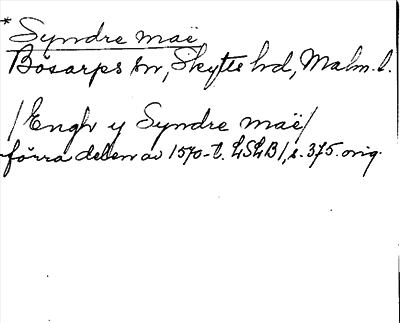 * Syndre maë
Bösarps sn, Skytts hd, Malm. l.
/Engh y Syndre maë/
förra delen av 1570-t. LSLB1, s. 375. orig.